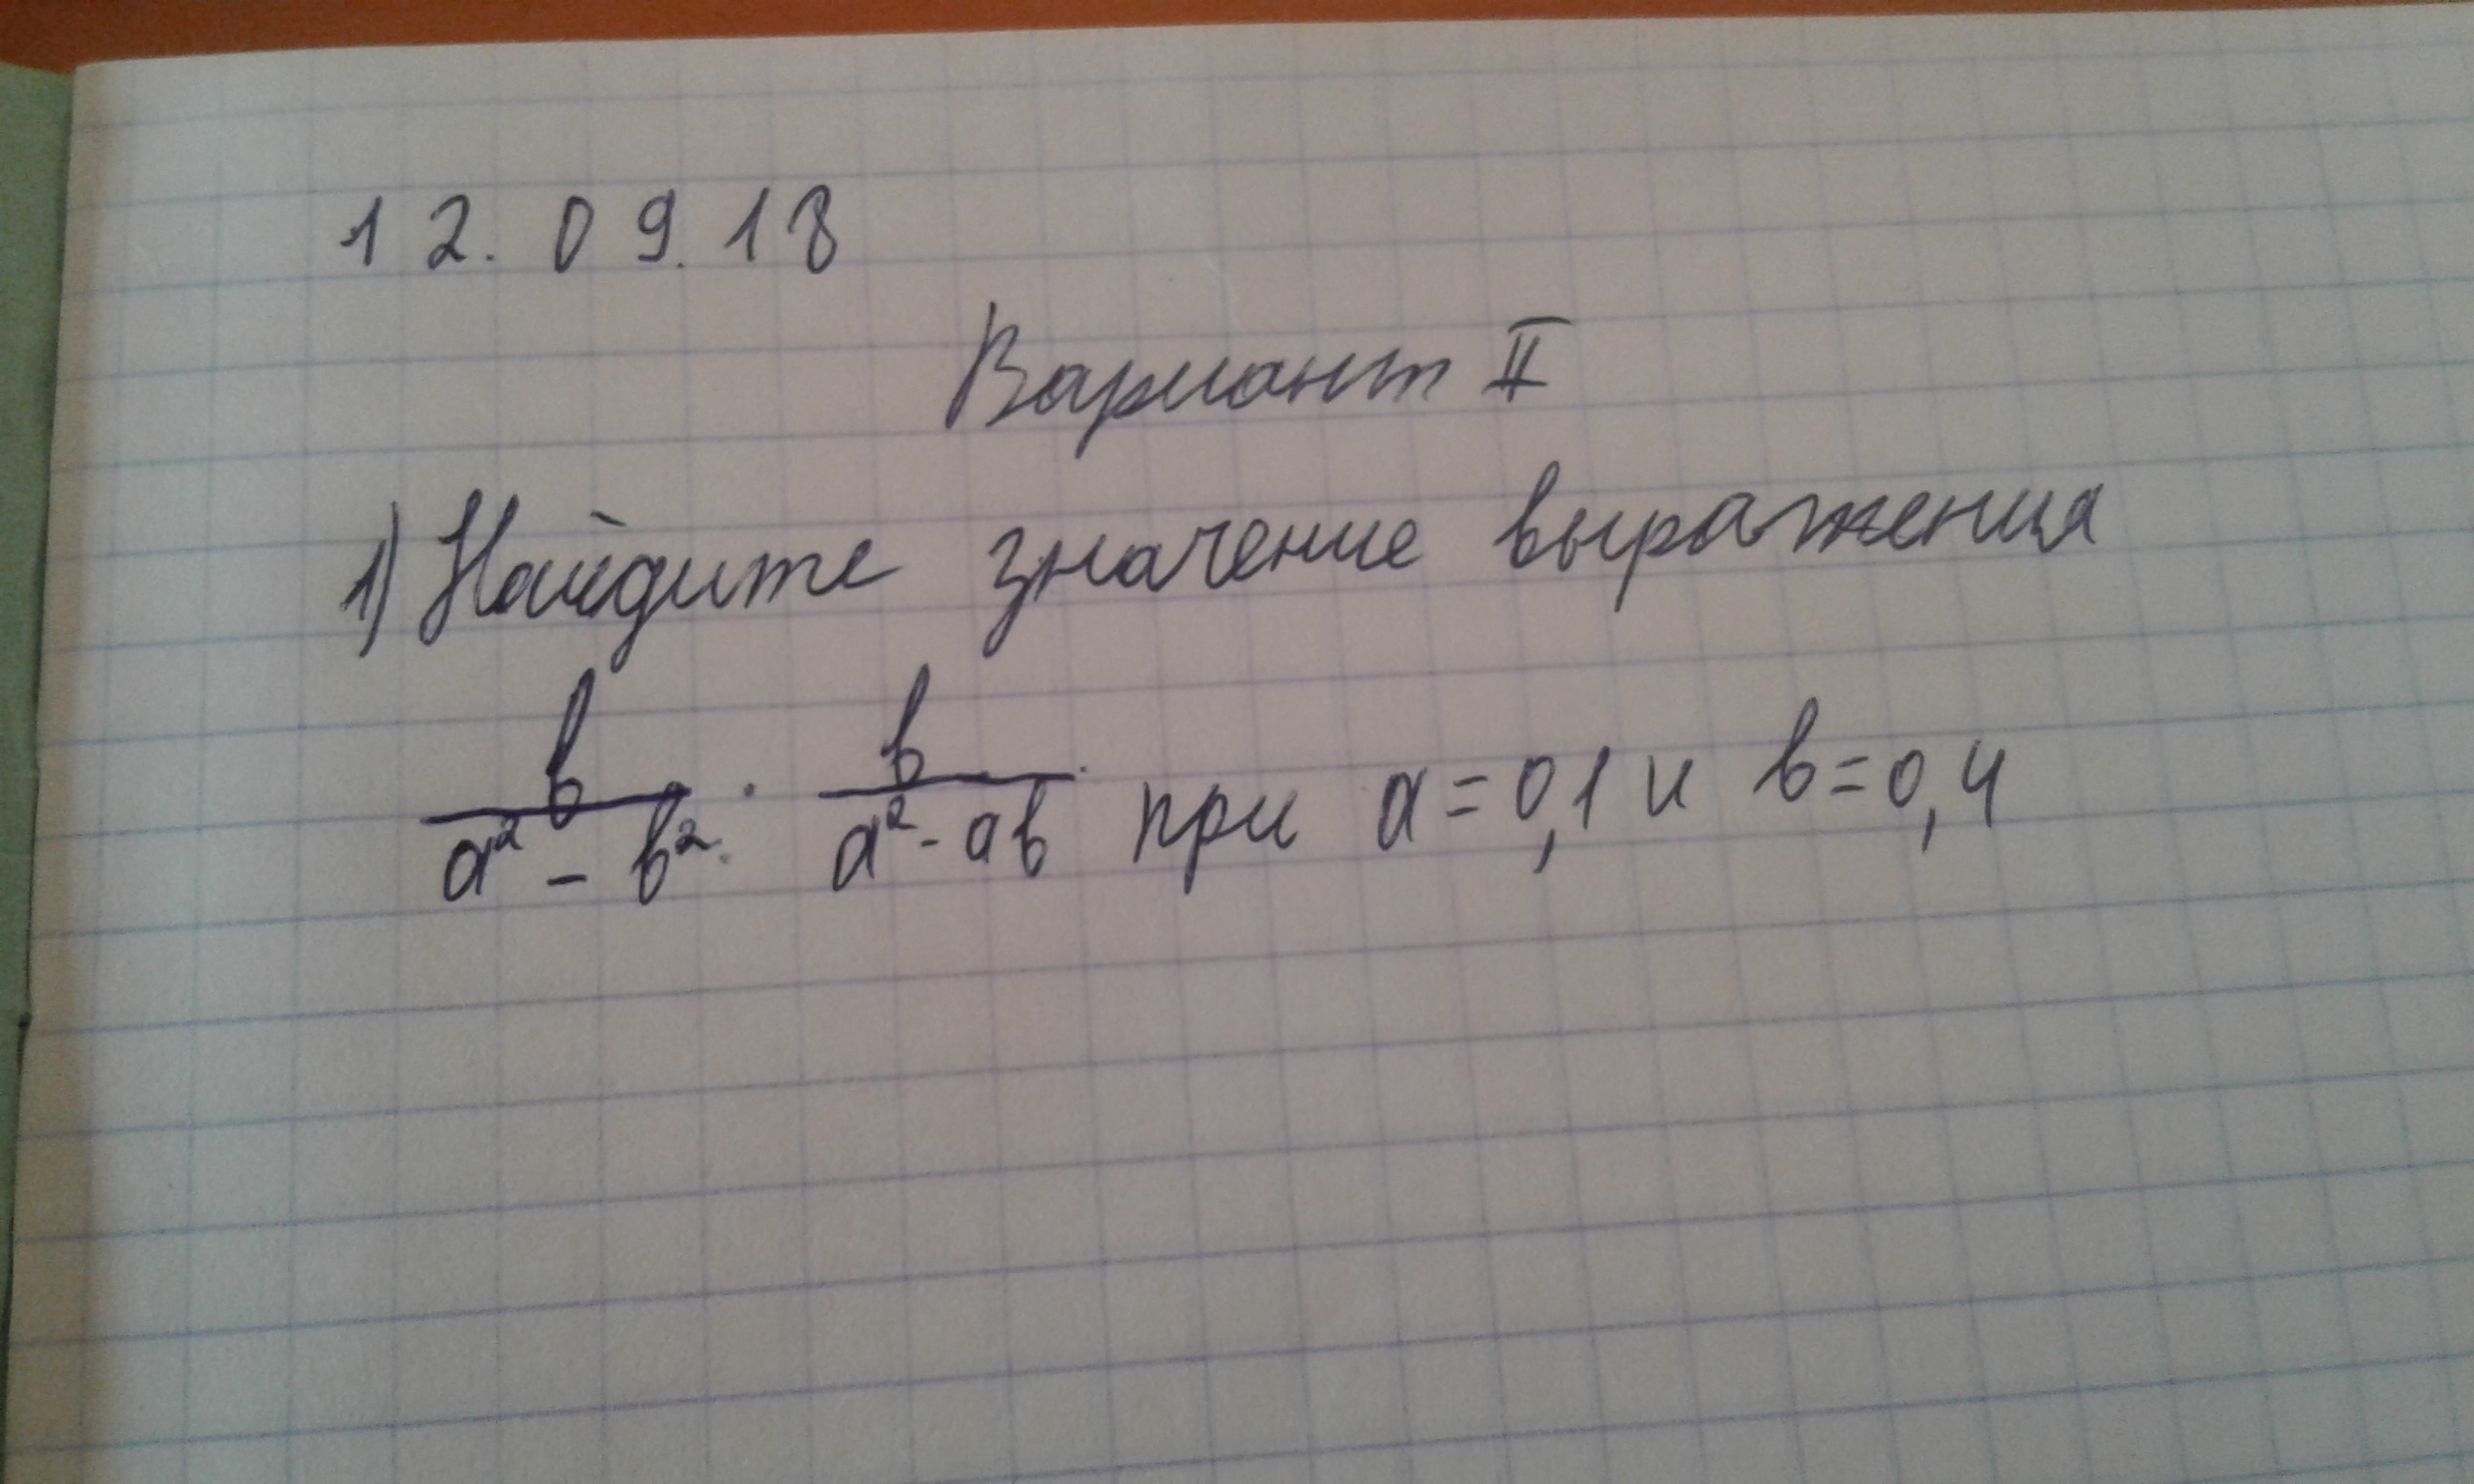 12.09.18
Вариант II
1) Найдите значение выражения
b/(a² - b²) · b/(a² - ab) при a=0,1 и b=0,4